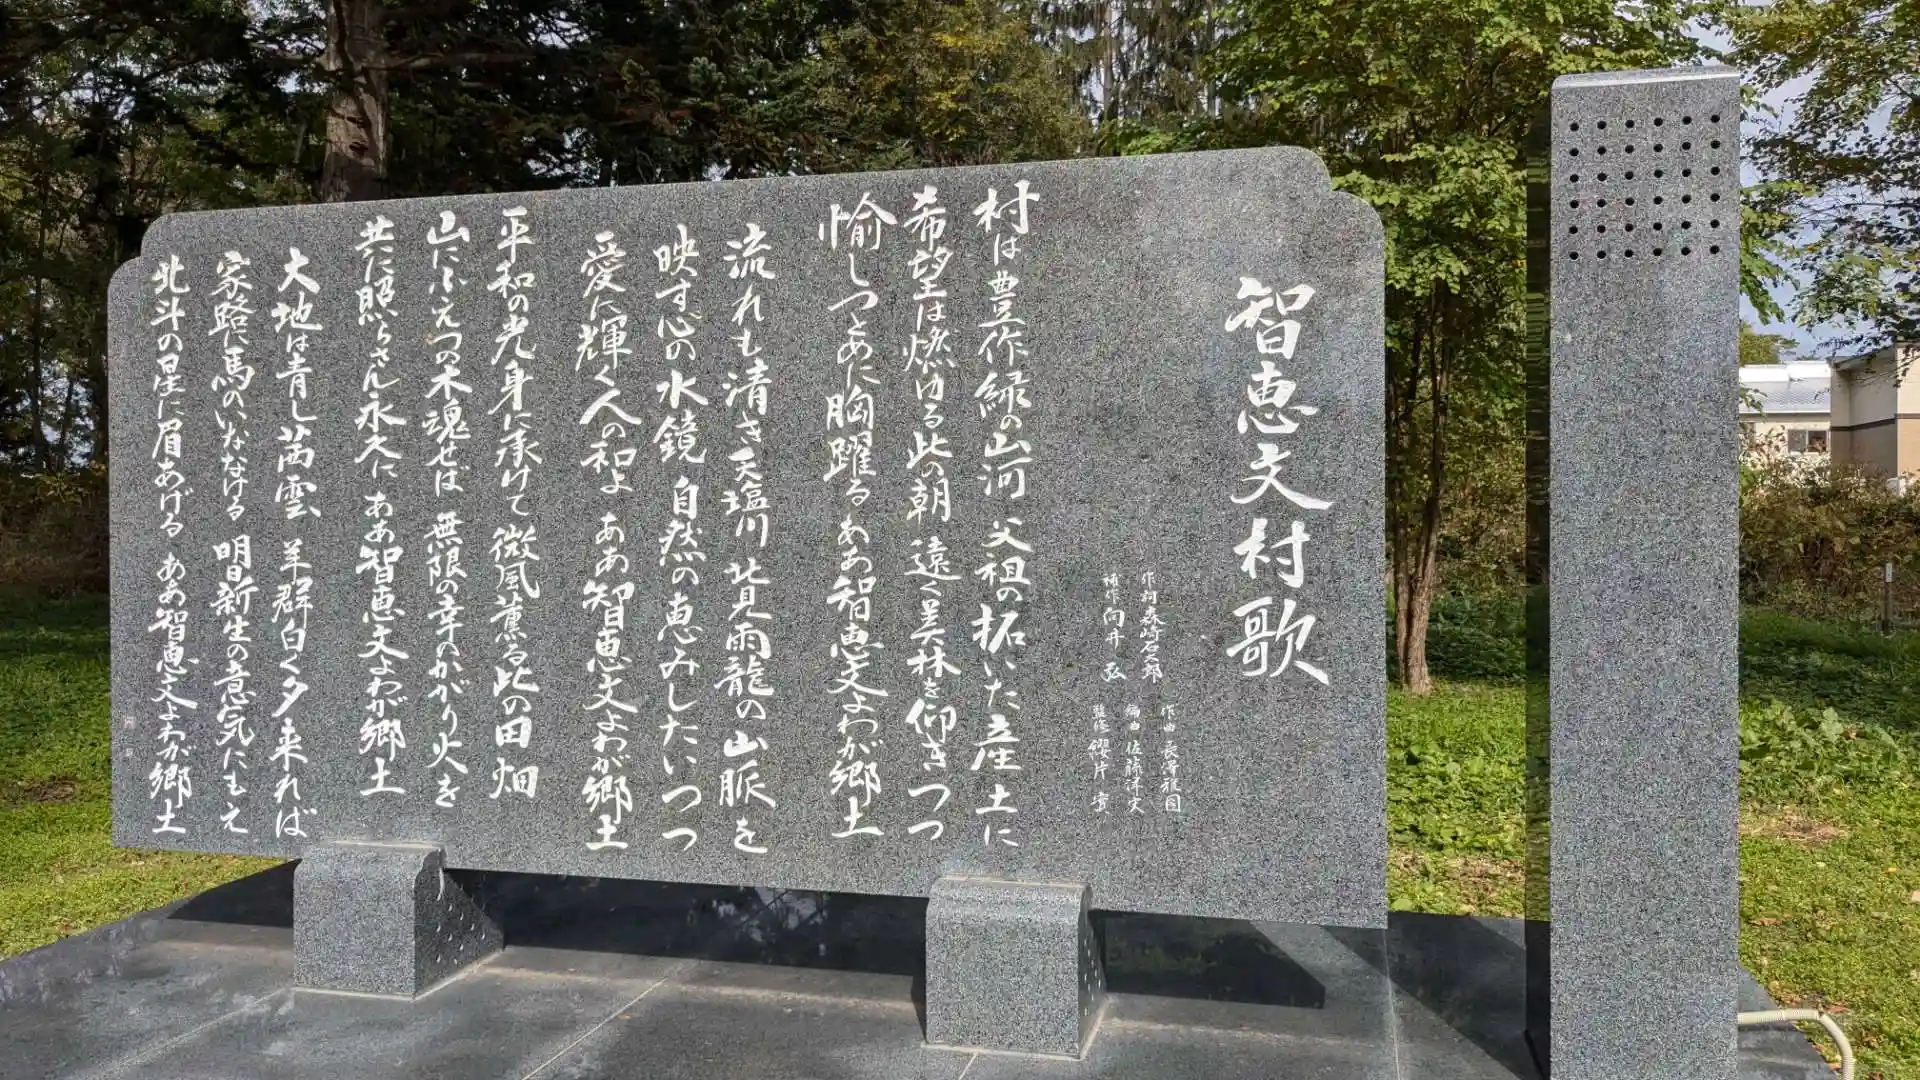 智恵文村歌
作詞 森崎石太郎
補作 向井 弘
作曲 長澤雅国
編曲 佐藤洋史
監修 鑓片 實
村は豊作緑の山河 父祖の拓いた産土に
希望は燃ゆる此の朝 遠く美林を仰きつつ
愉しつとめに胸躍る ああ智恵文よわが郷土
流れも清き天塩川 北見雨龍の山脈を
映す心の水鏡 自然の恵みしたいつつ
愛に輝く人の和よ ああ智恵文よわが郷土
平和の光身に承けて 微風薫る此の田畑
山にふえつの木魂せば 無限の幸のかがり火を
共に照らさん永久に ああ智恵文よわが郷土
大地は青し茜雲 羊群白く夕来れば
家路に馬のいななける 明日新生の意気にもえ
北斗の星に眉あげる ああ智恵文よわが郷土